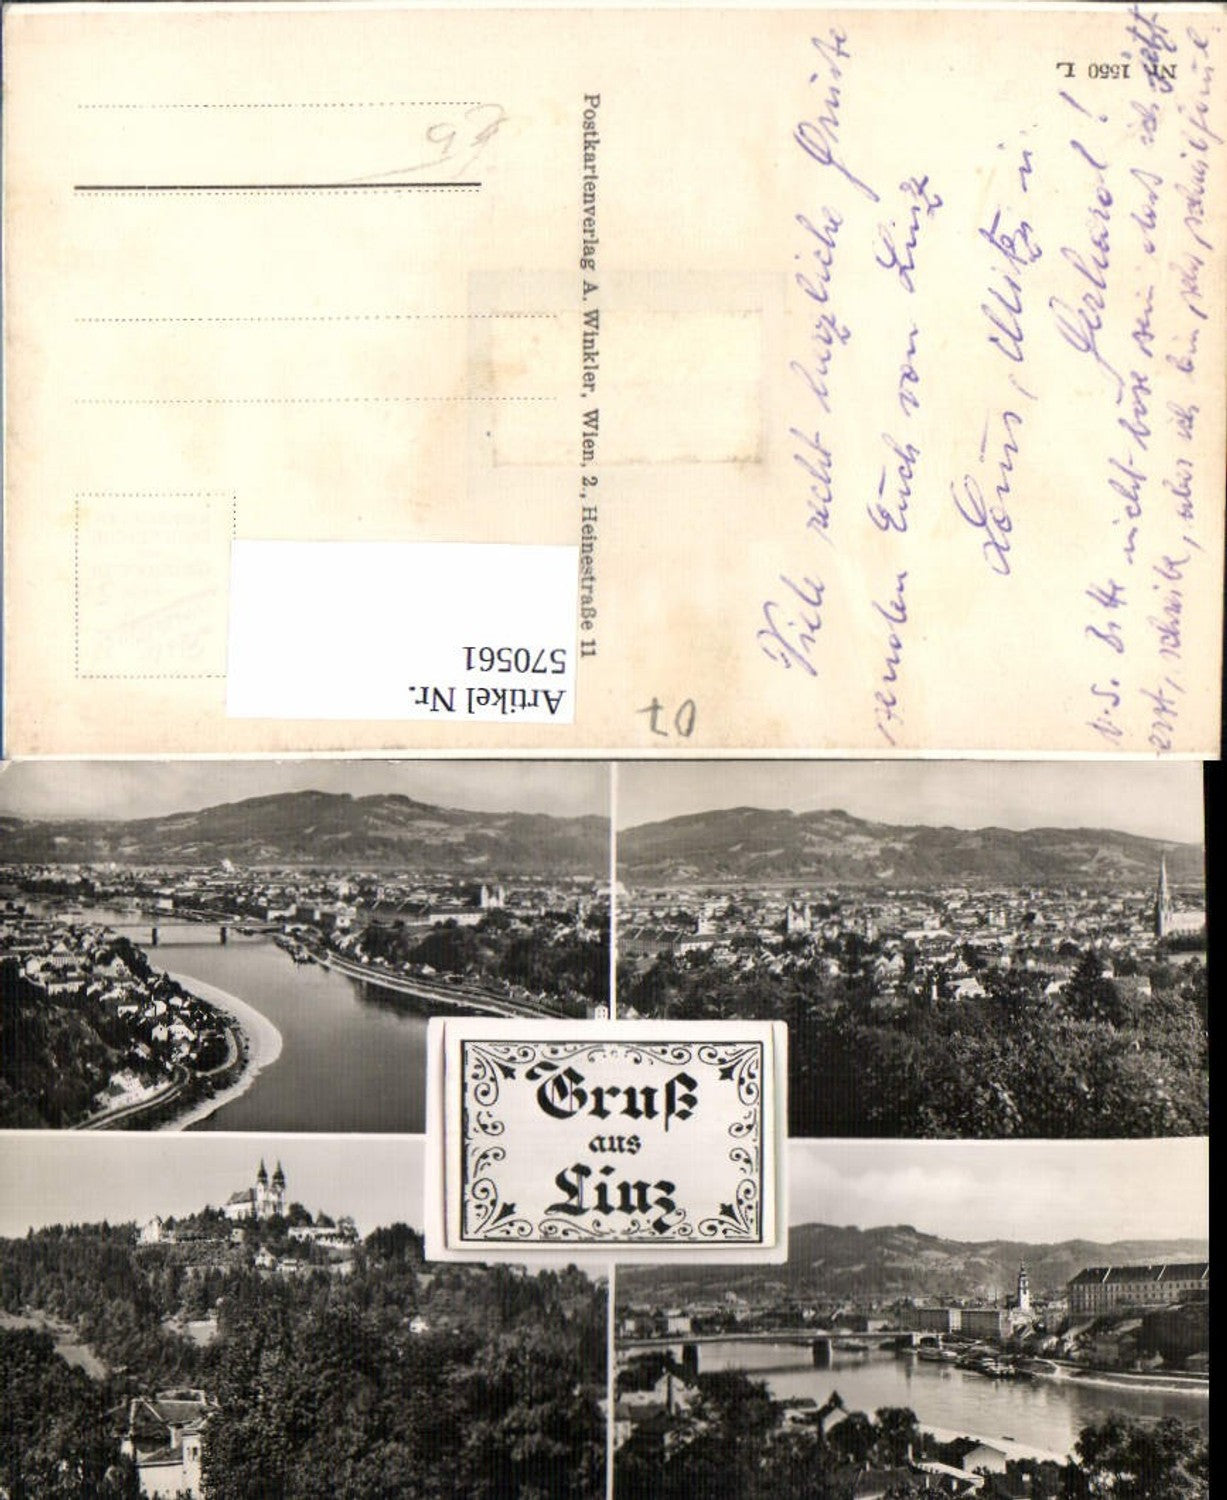 Nr. 1550 L
Viele recht herzliche Grüße
senden Euch von Linz
Louis, Mitzi u
Gerhard!
N.S. Bitte nicht böse sein dass ich jetzt
erst, schreibe, aber ich bin sehr, schreibfaul.
Postkartenverlag A. Winkler, Wien, 2., Heinestraße 11
Artikel Nr.
570561
07
Gruß
aus
Linz